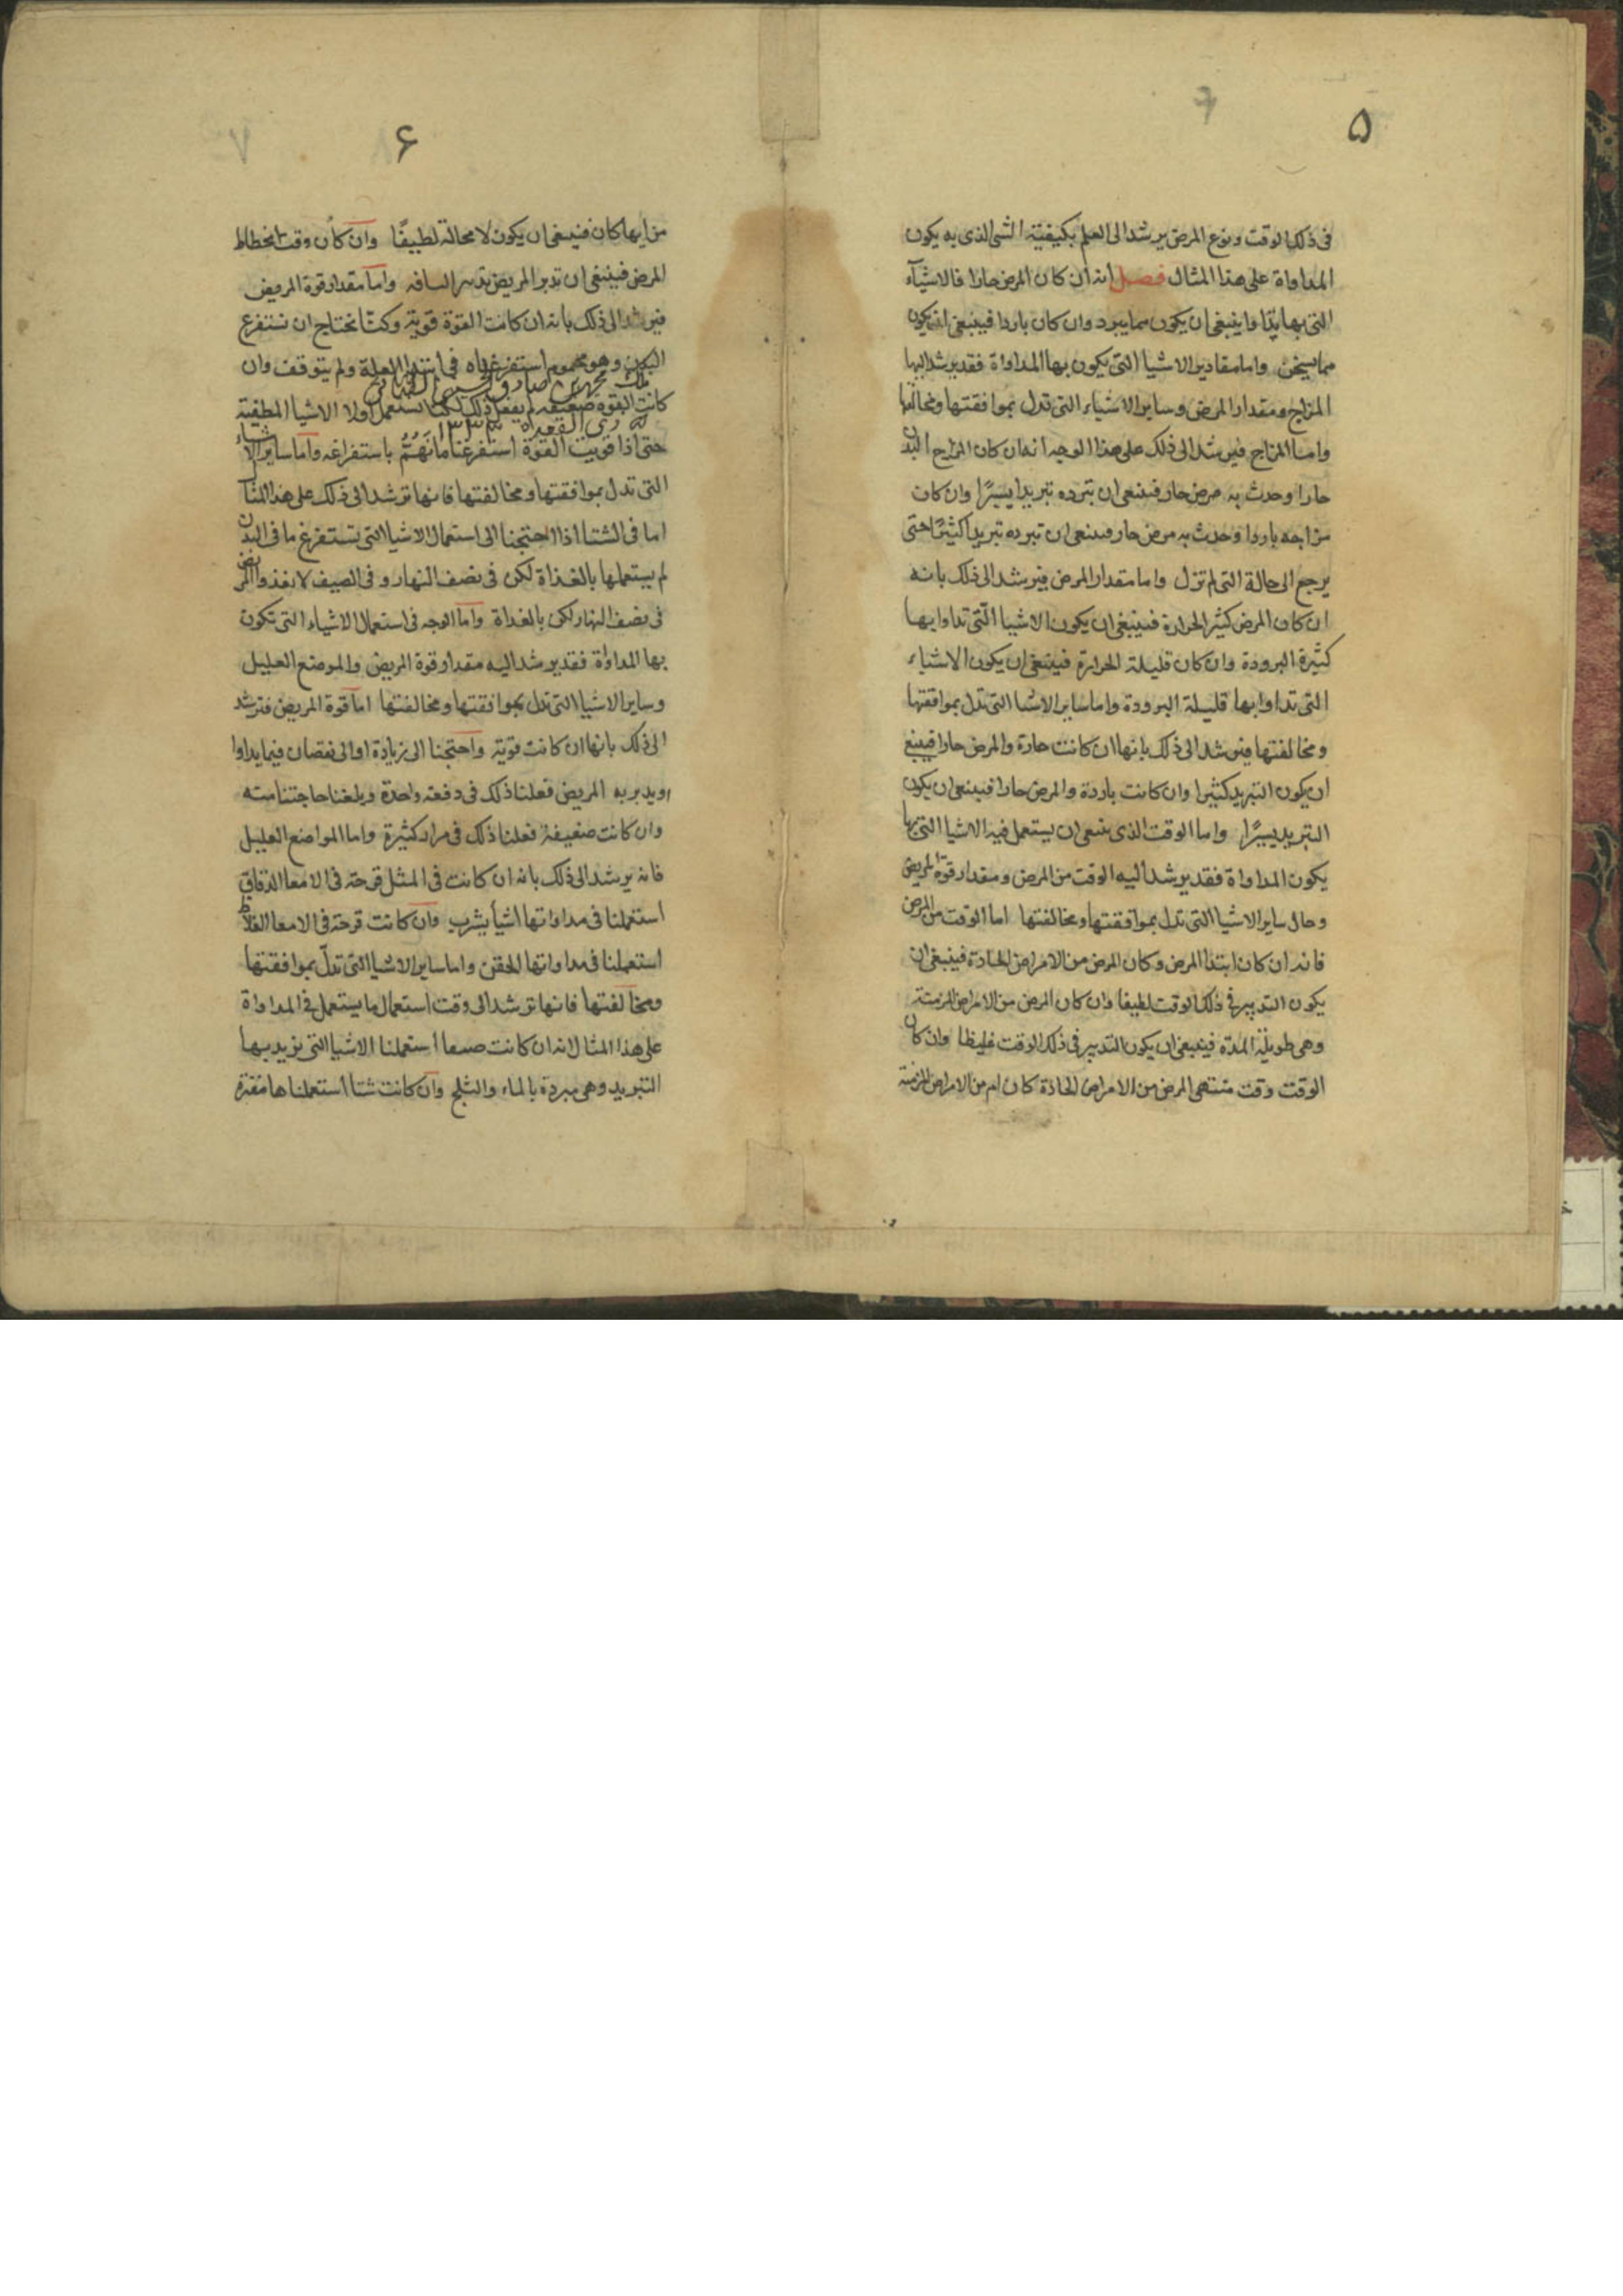 ۵
فى ذلك الوقت ونوع المرض يرشد الى العلم بكيفية الشى الذى به يكون
المداواة على هذا المثال فصل انه ان كان المرض حارا فالاشيآء
التى بها يتداوا ينبغى ان يكون مما يبرد وان كان باردا فينبغى ان يكون
مما يسخن واما مقادير الاشيا التى يكون بها المداواة فقد يرشد اليها
المزاج ومقدار المرض وساير الاشياء التى تدل بموافقتها ومخالفتها
واما المزاج فيرشد الى ذلك على هذا الوجه انه ان كان المزاج البدن
حارا وحدث به مرض حار فينبغى ان تبرده تبريدا يسيرًا وان كان
مزاجه باردا وحدث به مرض حار فينبغى ان تبرده تبريدا كثيرًا حتى
يرجع الى حالة التى لم تزل واما مقدار المرض فيرشد الى ذلك بانه
ان كان المرض كثير الحرارة فينبغى ان يكون الاشيا التى تداوا بها
كثيرة البرودة وان كان قليلة الحرارة فينبغى ان يكون الاشياء
التى تداوا بها قليلة البرودة واما ساير الاشيا التى تدل بموافقتها
ومخالفتها فيرشد الى ذلك بانها ان كانت حارة والمرض حارا فينبغ
ان يكون التبريد كثيرا وان كانت باردة والمرض حارا فينبغى ان يكون
التبريد يسيرًا واما الوقت الذى ينبغى ان يستعمل فيه الاشيا التى بها
يكون المداواة فقد يرشد اليه الوقت من المرض ومقدار قوة المريض
وحال ساير الاشيا التى تدل بموافقتها ومخالفتها اما الوقت من المرض
فانه ان كان ابتدا المرض وكان المرض من الامراض الحادة فينبغى ان
يكون التدبير فى ذلك الوقت لطيفا وان كان المرض من الامراض المزمنة
وهى طويلة المدة فينبغى ان يكون التدبير فى ذلك الوقت غليظا وان كان
الوقت وقت منتهى المرض من الامراض الحادة كان ام من الامراض المزمنة
۶
من ايها كان فينبغى ان يكون لا محالة لطيفًا وان كان وقت انحطاط
المرض فينبغى ان تدبر المريض تدبير الناقه واما مقدار قوة المريض
فيرشد الى ذلك بانه ان كانت القوة قوية وكنّا نحتاج ان نستفرغ
البدن وهو محموم استفرغناه فى ابتدا العلة ولم يتوقف وان
كانت القوة ضعيفة لم يفعل ذلك لكنا نستعمل اولا الاشيا المطفية
حتى اذا قويت القوة استفرغنا ما نَهُتمُّ باستفراغه واما ساير الاشياء
التى تدل بموافقتها ومخالفتها فانها ترشد الى ذلك على هذا المثال
اما فى الشتا اذا احتجنا الى استعمال الاشيا التى تستفرغ ما فى البدن
لم يستعملها بالغداة لكن فى نصف النهار و فى الصيف لا نغذوا المريض
فى نصف النهار لكن بالغداة واما الوجه فى استعمال الاشياء التى تكون
بها المداواة فقد يرشد اليه مقدار قوة المريض والموضع العليل
وساير الاشيا التى تدل بموافقتها ومخالفتها اما قوة المريض فترشد
الى ذلك بانها ان كانت قوية واحتجنا الى زيادة او الى نقصان فيما يداوا
او يدبر به المريض فعلنا ذلك فى دفعة واحدة وبلغنا حاجتنا منه
وان كانت ضعيفة فعلنا ذلك فى مرار كثيرة واما المواضع العليل
فانه يرشد الى ذلك بانه ان كانت فى المثل قرحة فى الامعا الدقاق
استعملنا فى مداواتها اشيأ يشرب وان كانت قرحة فى الامعا الغلاظ
استعملنا فى مداواتها الحقن واما ساير الاشيا التى تدلّ بموافقتها
ومخالفتها فانها ترشد الى وقت استعمال ما يستعمل فى المداواة
على هذا المثال لانه ان كانت صيفا استعملنا الاشيا التى نريد بها
التبريد وهى مبردة بالماء والثلج وان كانت شتا استعملناها مفترة